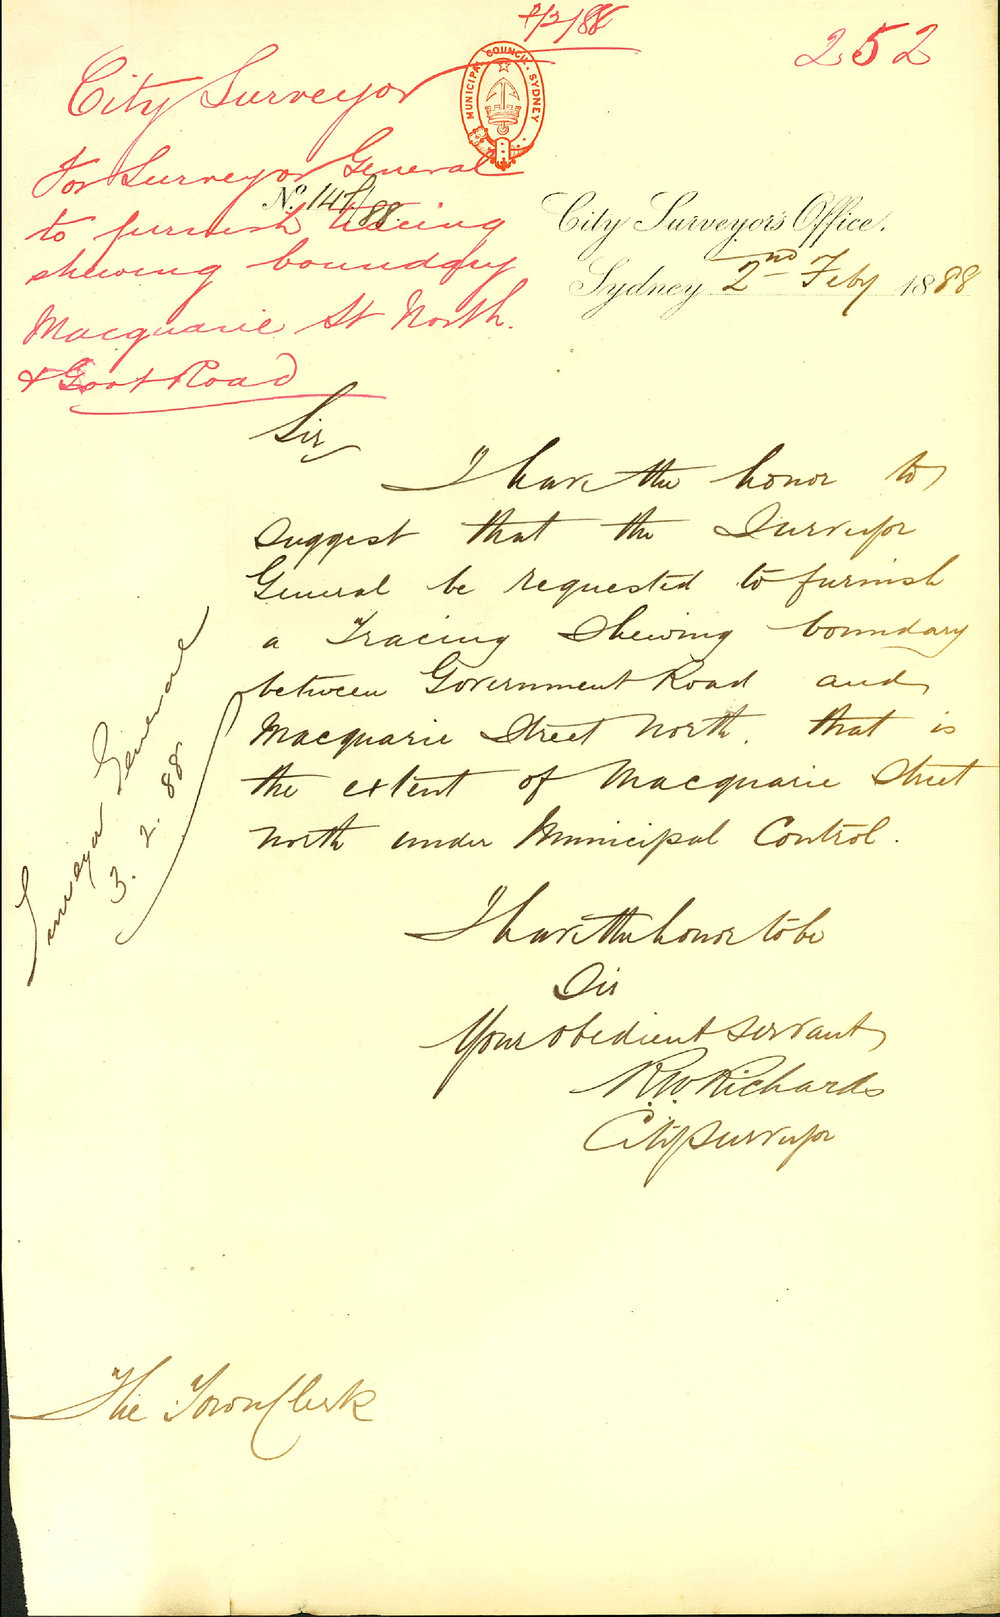 2/2/88
252
City Surveyor
MUNICIPAL COUNCIL. SYDNEY
For Surveyor General
No. 147/88.
to furnish tracing
shewing boundary
Macquarie St North.
& Govt Road
City Surveyor's Office.
Sydney 2nd Feby 1888
Sir
I have the honor to
suggest that the Surveyor
General be requested to furnish
a Tracing Shewing boundary
between Government Road and
Macquarie Street North. that is
the extent of Macquarie Street
North under Municipal Control.
Surveyor General
3. 2. 88
I have the honor to be
Sir
Your obedient servant
R.W. Richards
City Surveyor
The Town Clerk